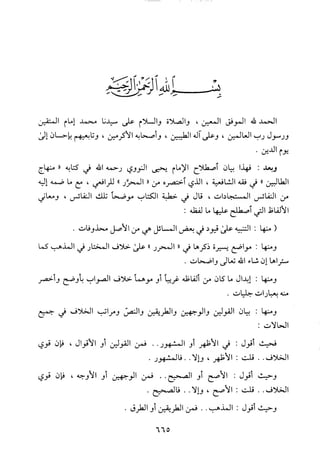 بسم الله الرحمن الرحيم
الحمد لله الموفق المعين ، والصلاة والسلام على سيدنا محمد إمام المتقين
ورسول رب العالمين ، وعلى آله الطيبين ، وأصحابه الأكرمين ، وتابعيهم بإحسان إلى
يوم الدين .
وبعد : فهذا بيان اصطلاح الإمام يحيى النووي رحمه الله في كتابه « منهاج
الطالبين » في فقه الشافعية ، الذي اختصره من « المحرر » للرافعي ، مع ما ضم إليه
من النفائس المستجادات ، قال في خطبة الكتاب مبيناً تلك النفائس ، ومعاني
الألفاظ التي اصطلح عليها ما لفظه :
( منها : التنبيه على قيود في بعض المسائل هي من الأصل محذوفات .
ومنها : مواضع يسيرة ذكرها في « المحرر » على خلاف المختار في المذهب كما
ستراها إن شاء الله تعالى واضحات .
ومنها : إبدال ما كان من ألفاظه غريباً أو موهماً خلاف الصواب بأوضح وأخصر
منه بعبارات جليات .
ومنها : بيان القولين والوجهين والطريقين والنص ومراتب الخلاف في جميع
الحالات :
فحيث أقول : في الأظهر أو المشهور .. فمن القولين أو الأقوال ، فإن قوي
الخلاف .. قلت : الأظهر ، وإلا .. فالمشهور .
وحيث أقول : الأصح أو الصحيح .. فمن الوجهين أو الأوجه ، فإن قوي
الخلاف .. قلت : الأصح ، وإلا .. فالصحيح .
وحيث أقول : المذهب .. فمن الطريقين أو الطرق .
٦٦٥